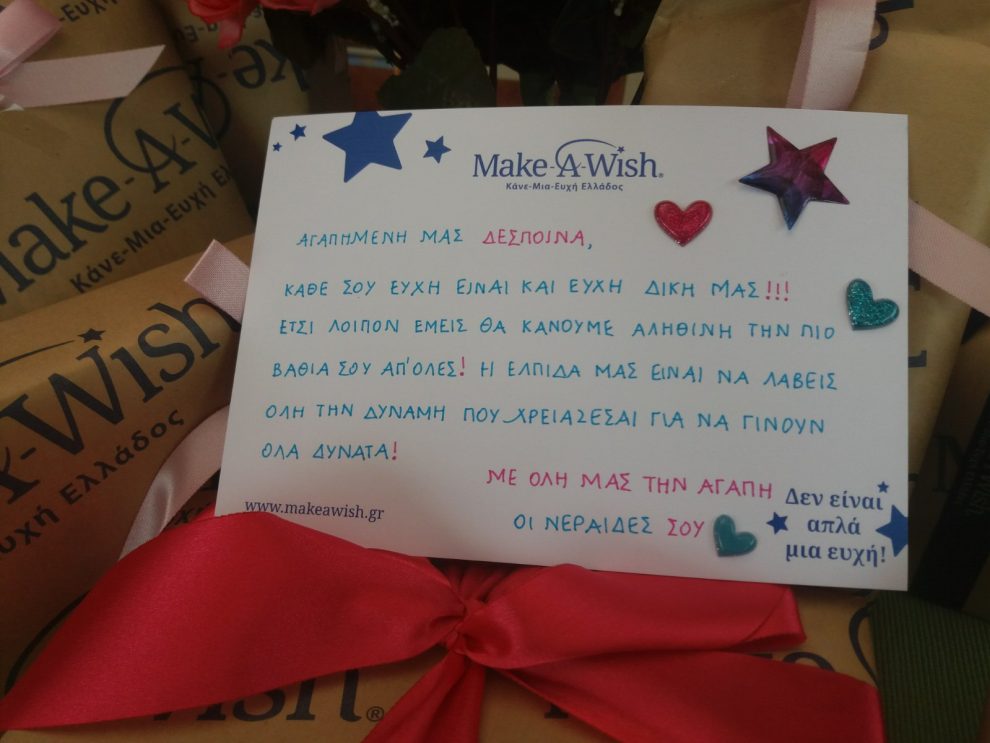 Make-A-Wish®
Κάνε-Μια-Ευχή Ελλάδος
ΑΓΑΠΗΜΕΝΗ ΜΑΣ ΔΕΣΠΟΙΝΑ,
ΚΑΘΕ ΣΟΥ ΕΥΧΗ ΕΙΝΑΙ ΚΑΙ ΕΥΧΗ ΔΙΚΗ ΜΑΣ!!!
ΕΤΣΙ ΛΟΙΠΟΝ ΕΜΕΙΣ ΘΑ ΚΑΝΟΥΜΕ ΑΛΗΘΙΝΗ ΤΗΝ ΠΙΟ
ΒΑΘΙΑ ΣΟΥ ΑΠ'ΟΛΕΣ! Η ΕΛΠΙΔΑ ΜΑΣ ΕΙΝΑΙ ΝΑ ΛΑΒΕΙΣ
ΟΛΗ ΤΗΝ ΔΥΝΑΜΗ ΠΟΥ ΧΡΕΙΑΖΕΣΑΙ ΓΙΑ ΝΑ ΓΙΝΟΥΝ
ΟΛΑ ΔΥΝΑΤΑ!
ΜΕ ΟΛΗ ΜΑΣ ΤΗΝ ΑΓΑΠΗ
ΟΙ ΝΕΡΑΙΔΕΣ ΣΟΥ
www.makeawish.gr
Δεν είναι
απλά
μια ευχή!
Make-A-W
Κάνε-Μια-Ευχή Ελ
-Wish
Ευχή Ελλάδος
ish®